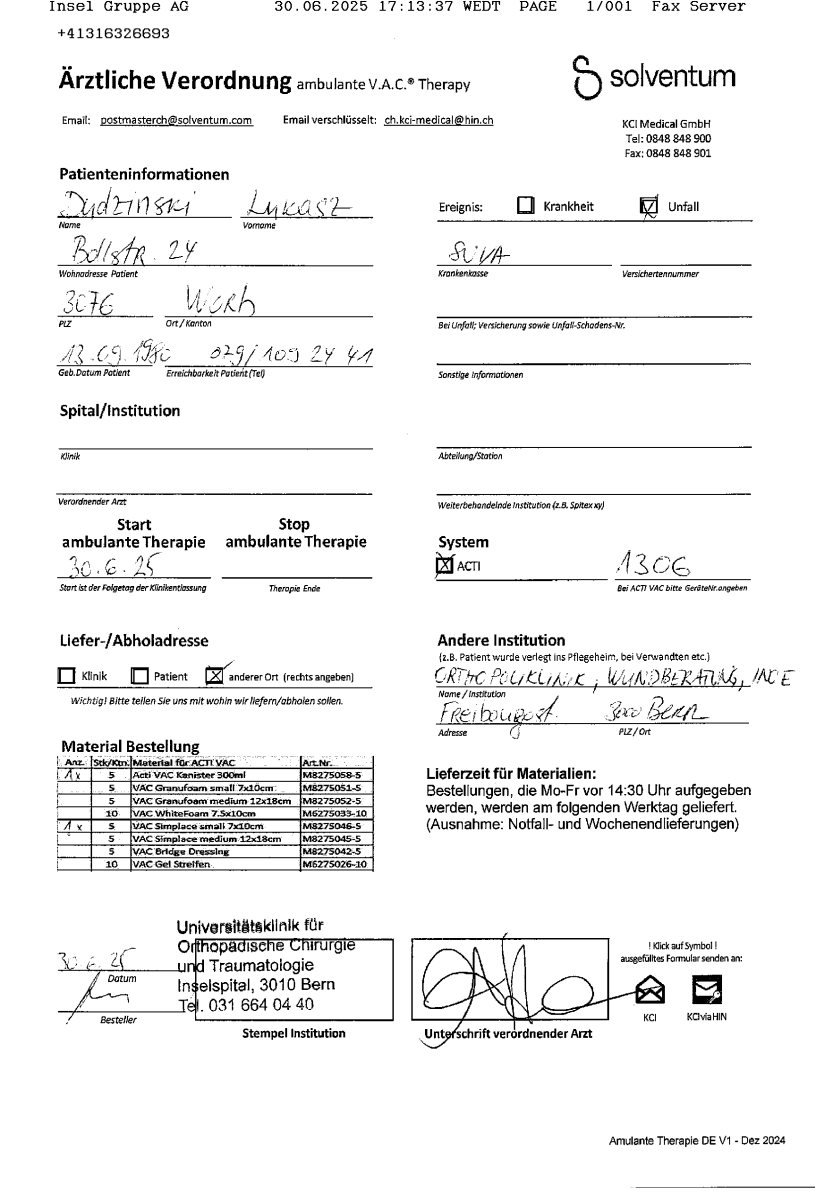 Insel Gruppe AG 30.06.2025 17:13:37 WEDT PAGE 1/001 Fax Server
+41316326693
Ärztliche Verordnung ambulante V.A.C.® Therapy
solventum
Email: postmasterch@solventum.com Email verschlüsselt: ch.kci-medical@hin.ch
KCI Medical GmbH
Tel: 0848 848 900
Fax: 0848 848 901
Patienteninformationen
Dudzinski Lukasz
Name Vorname
Ereignis: Krankheit Unfall
Bollstr. 24
Wohnadresse Patient
SUVA
Krankenkasse Versichertennummer
3076 Worb
PLZ Ort / Kanton
Bei Unfall; Versicherung sowie Unfall-Schadens-Nr.
13.09.1980 079/109 24 41
Geb.Datum Patient Erreichbarkeit Patient (Tel)
Sonstige Informationen
Spital/Institution
Klinik
Abteilung/Station
Verordnender Arzt
Weiterbehandelnde Institution (z.B. Spitex xy)
Start ambulante Therapie
Stop ambulante Therapie
30.6.25
Start ist der Folgetag der Klinikentlassung
Therapie Ende
System
ACTI 1306
Bei ACTI VAC bitte GeräteNr.angeben
Liefer-/Abholadresse
Klinik Patient anderer Ort (rechts angeben)
Wichtig! Bitte teilen Sie uns mit wohin wir liefern/abholen sollen.
Andere Institution
(z.B. Patient wurde verlegt ins Pflegeheim, bei Verwandten etc.)
ORTHO POLIKLINIK, WUNDBERATUNG, INO E
Name / Institution
Freiburgst. 3000 Bern
Adresse PLZ / Ort
Material Bestellung
Anz. Stk/Ktn. Material für ACTI VAC Art.Nr.
1x 5 Acti VAC Kanister 300ml M8275058-5
5 VAC Granufoam small 7x10cm M8275051-5
5 VAC Granufoam medium 12x18cm M8275052-5
10 VAC WhiteFoam 7.5x10cm M6275033-10
1x 5 VAC Simplace small 7x10cm M8275046-5
5 VAC Simplace medium 12x18cm M8275045-5
5 VAC Bridge Dressing M8275042-5
10 VAC Gel Streifen M6275026-10
Lieferzeit für Materialien:
Bestellungen, die Mo-Fr vor 14:30 Uhr aufgegeben
werden, werden am folgenden Werktag geliefert.
(Ausnahme: Notfall- und Wochenendlieferungen)
30.6.25
Datum
Besteller
Universitätsklinik für
Orthopädische Chirurgie
und Traumatologie
Inselspital, 3010 Bern
Tel. 031 664 04 40
Stempel Institution
Unterschrift verordnender Arzt
! Klick auf Symbol !
ausgefülltes Formular senden an:
KCI KCI via HIN
Amulante Therapie DE V1 - Dez 2024